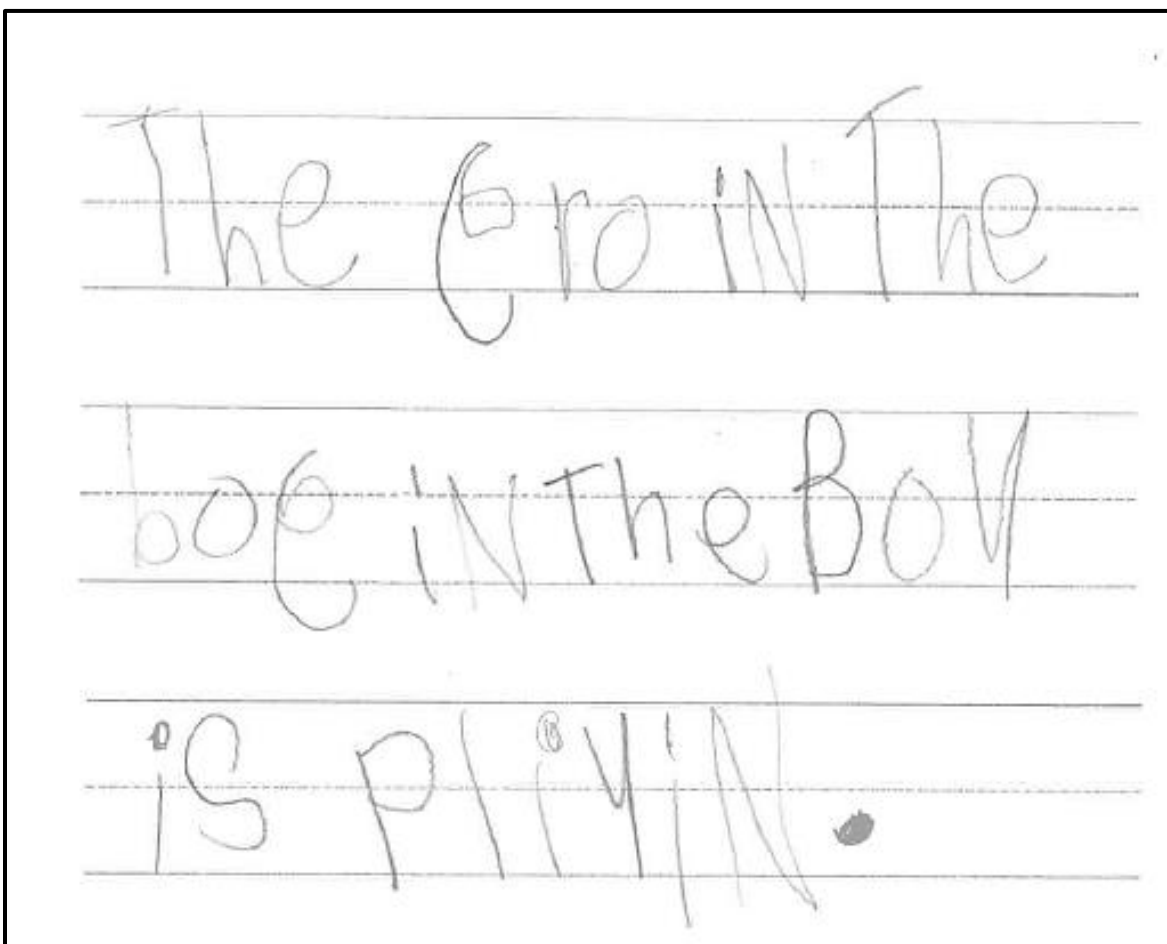 The gro iN The
bog iN The BoY
is pliYiN.